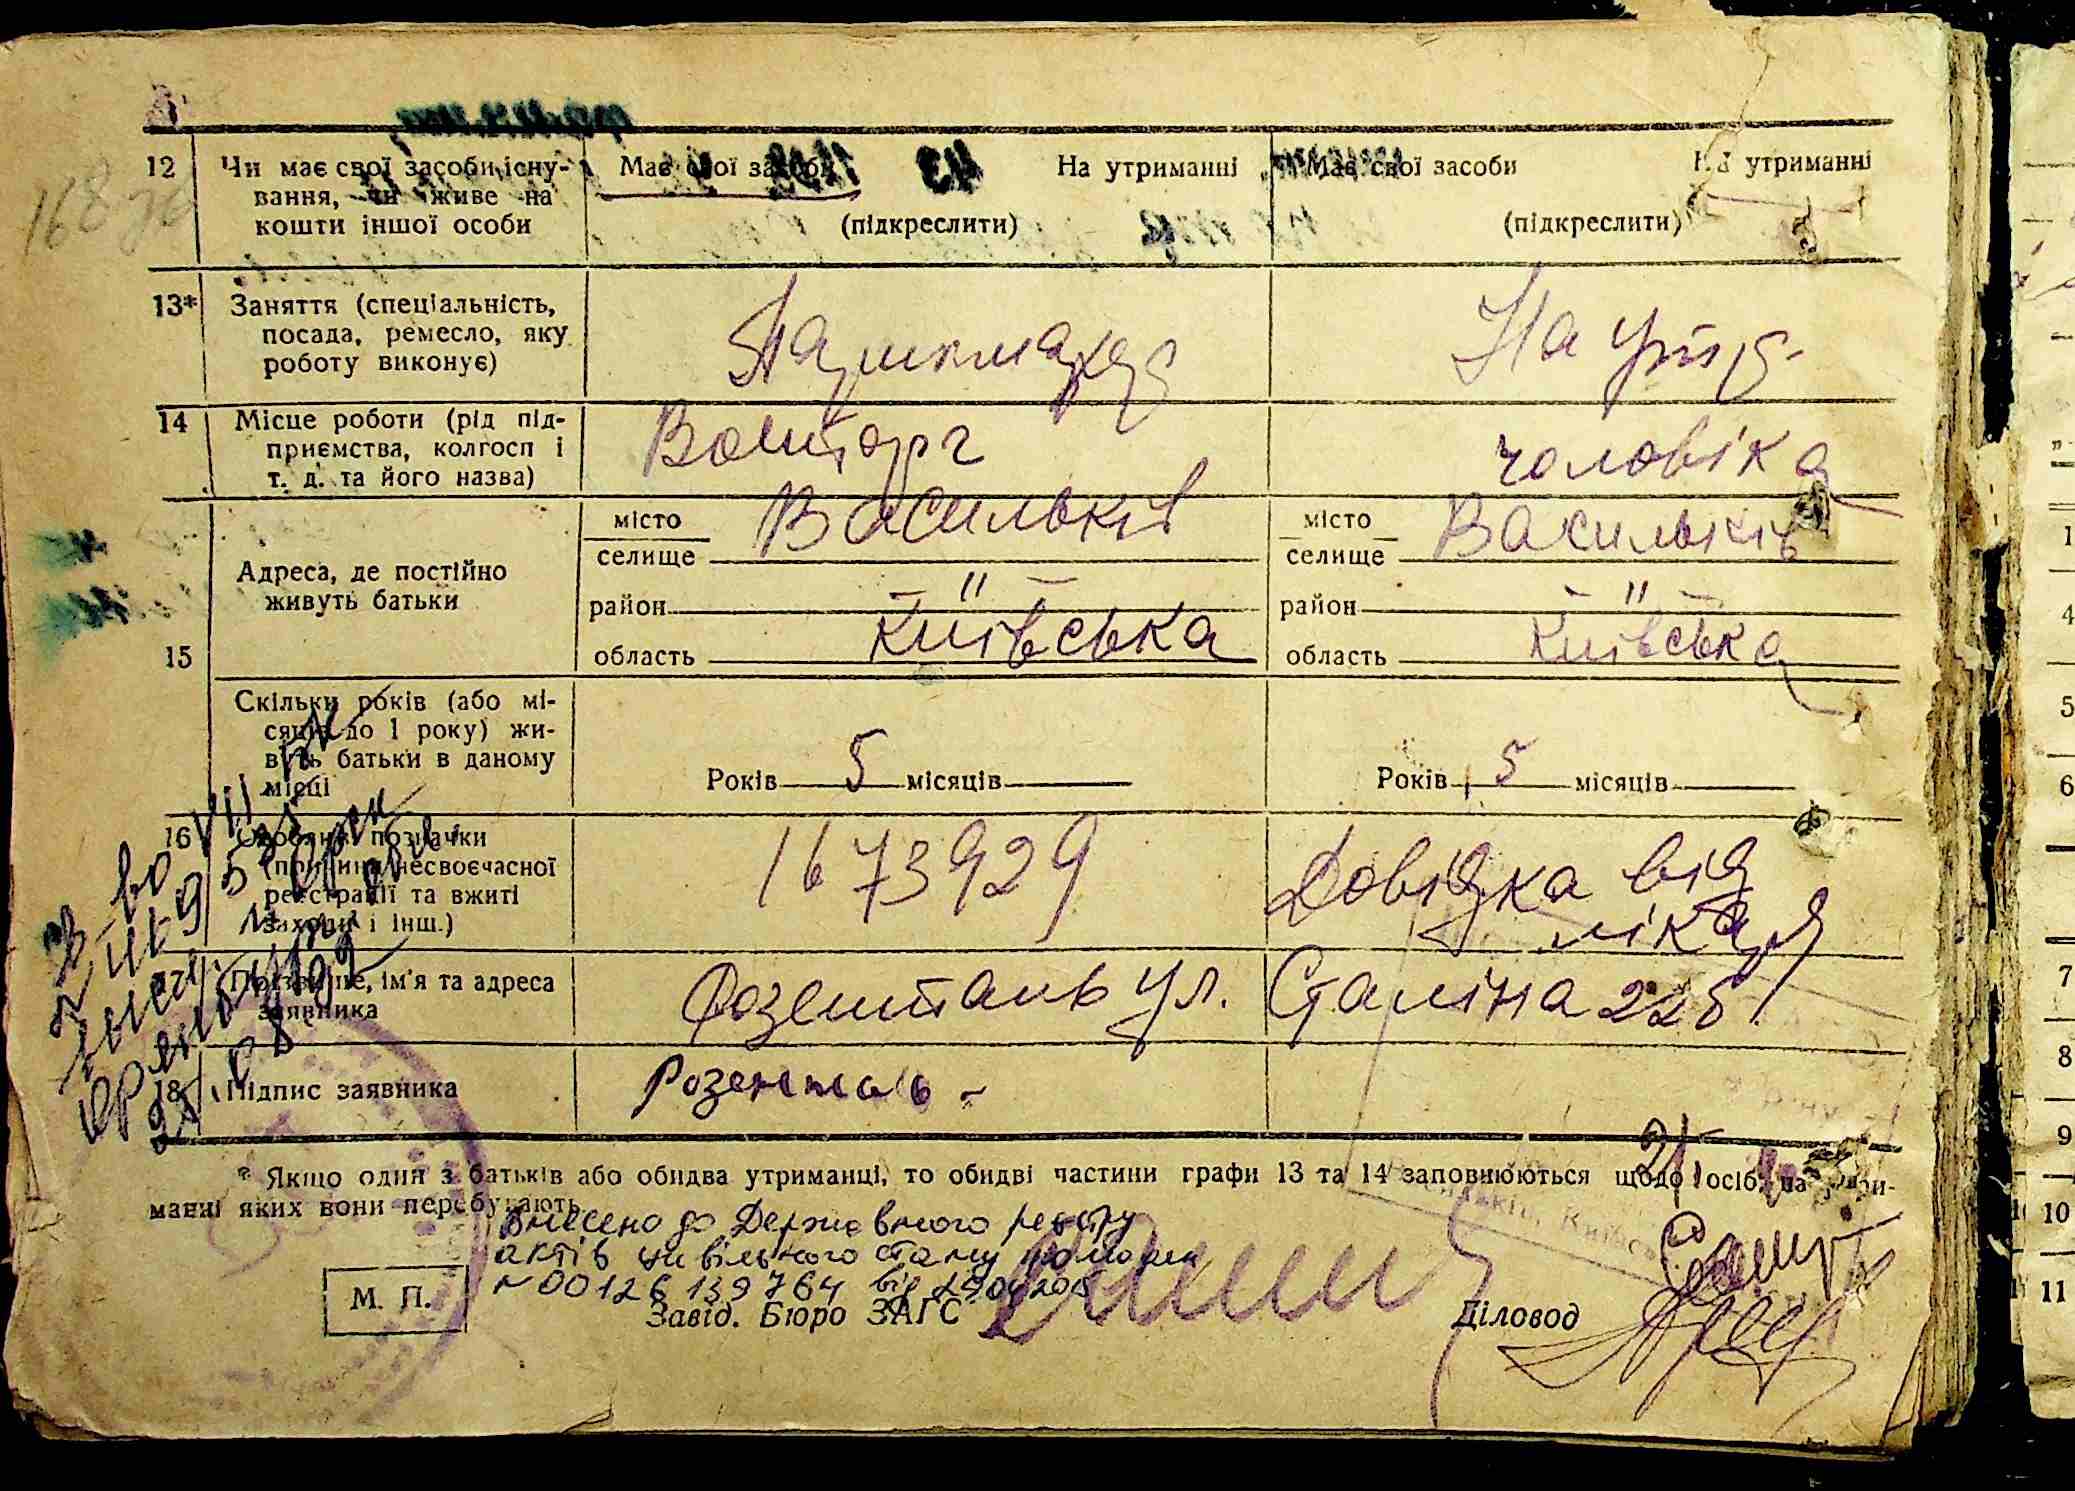 12 Чи має свої засоби існу-
вання, чи живе на
кошти іншої особи
Має свої засоби На утриманні
(підкреслити)
Має свої засоби На утриманні
(підкреслити)
13* Заняття (спеціальність,
посада, ремесло, яку
роботу виконує)
На утр.
14 Місце роботи (рід під-
приємства, колгосп і
т. д. та його назва)
Воєнторг
чоловіка
15 Адреса, де постійно
живуть батьки
місто Васильків
селище
район — " —
область Київська
місто Васильків
селище
район — " —
область Київська
Скільки років (або мі-
сяців до 1 року) жи-
вуть батьки в даному
місці
Років 5 місяців
Років 5 місяців
16 Особливі позначки
(причини несвоєчасної
реєстрації та вжиті
заходи і інш.)
1673929
Довідка від
лікаря
Прізвище, ім'я та адреса
заявника
Розенталь ул. Сталіна 225
18 Підпис заявника
Розенталь
* Якщо один з батьків або обидва утриманці, то обидві частини графи 13 та 14 заповнюються щодо осіб, на утри-
манні яких вони перебувають.
Внесено до Державного реєстру
актів цивільного стану громадян
N 00126139764 від
М. П.
Завід. Бюро ЗАГС
Діловод
1
4
5
6
7
8
9
10
11